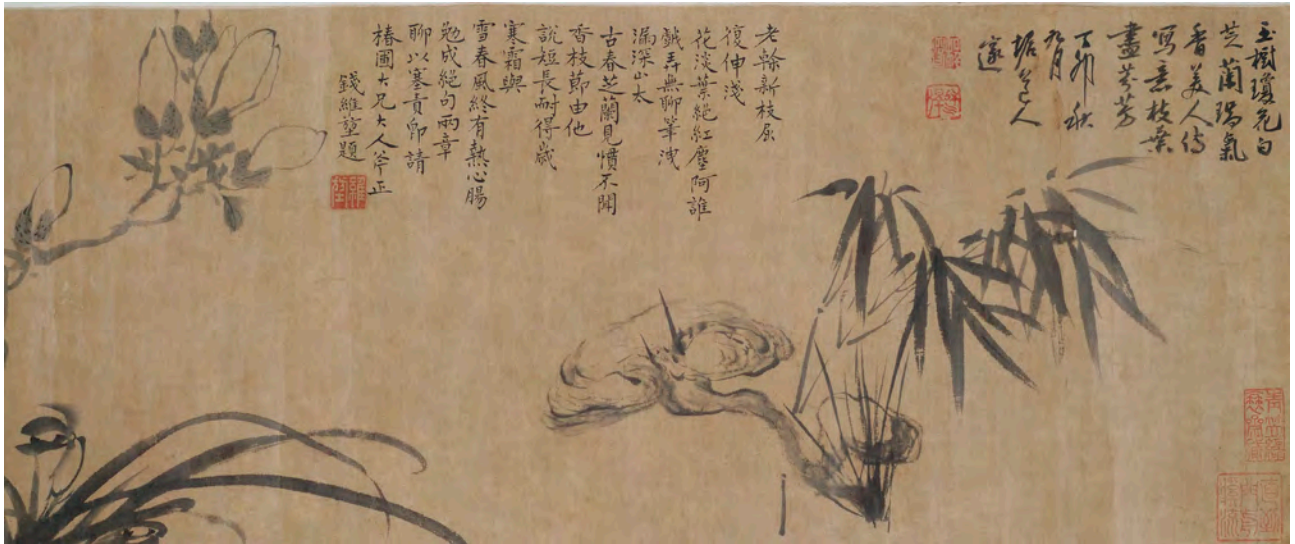 玉樹瓊花白
芝蘭瑞氣
香美人
寫意枝葉
盡芬芳
丁卯秋
九月
垢道人
邃
老榦新枝屈
復伸淺
花淡葉絕紅塵阿誰
戲弄無聊筆洩
漏深山太
古春芝蘭見慣不聞
香枝節由他
說短長耐得歲
寒霜與
雪春風終有熱心腸
勉成絕句兩章
聊以塞責即請
椿圖大兄大人斧正
錢維堃題
維堃